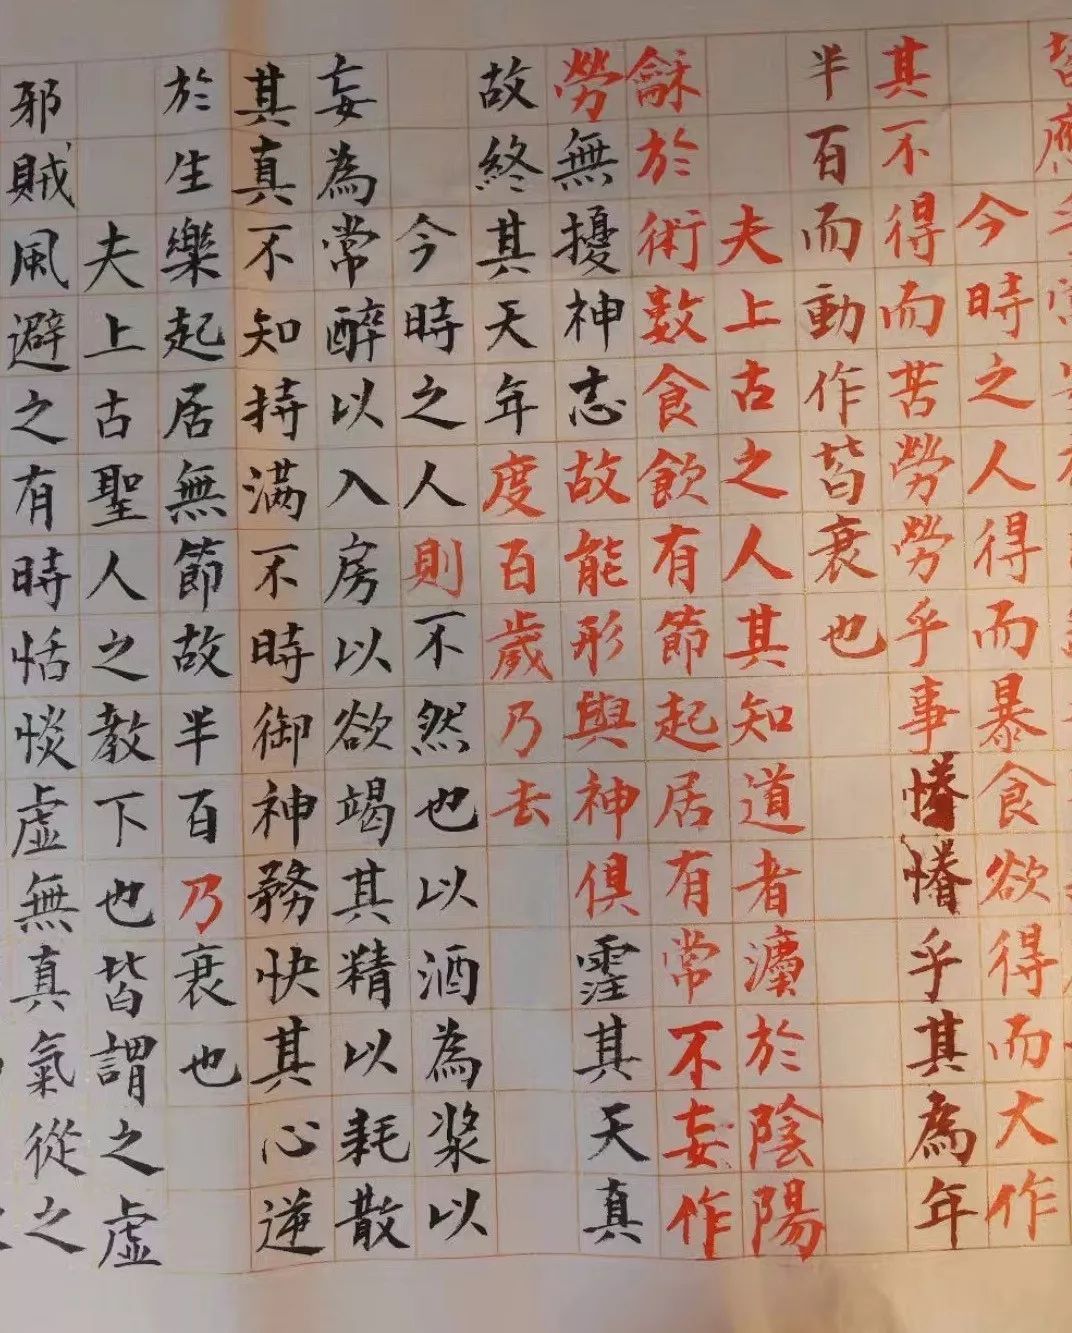 皆應
今時之人得而暴食欲得而大作
其不得而苦勞勞乎事乎其為年
半百而動作皆衰也
夫上古之人其知道者灋於陰陽
龢於術數食飲有節起居有常不妄作
勞無擾神志故能形與神俱霔其天真
故終其天年度百歲乃去
今時之人則不然也以酒為漿以
妄為常醉以入房以欲竭其精以耗散
其真不知持滿不時御神務快其心逆
於生樂起居無節故半百乃衰也
夫上古聖人之教下也皆謂之虛
邪賊風避之有時恬惔虛無真氣從之